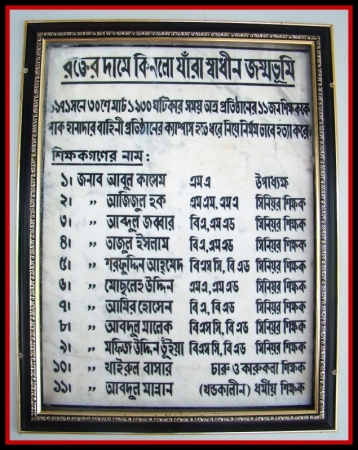 রক্তের দামে কিনলো যাঁরা স্বাধীন জন্মভূমি
১৯৭১ সনে ৩০শে মার্চ ১৯০০ ঘটিকার সময় অত্র প্রতিষ্ঠানের ১১ জন শিক্ষককে
পাক হানাদার বাহিনী প্রতিষ্ঠানের ক্যাম্পাস হতে ধরে নিয়ে নির্মম ভাবে হত্যা করে।
শিক্ষকগণের নাম:
১। জনাব আবুল কাসেম এম এ উপাধ্যক্ষ
২। ,, আজিজুল হক এম এম, এম এ সিনিয়র শিক্ষক
৩। ,, আব্দুল জব্বার বি এ, এম এড সিনিয়র শিক্ষক
৪। ,, তাজুল ইসলাম বি এ, এম এড সিনিয়র শিক্ষক
৫। ,, শরফুদ্দিন আহমেদ বি এস সি, বি এড সিনিয়র শিক্ষক
৬। ,, মোছলেহ উদ্দিন এম এ, এম এড সিনিয়র শিক্ষক
৭। ,, আমির হোসেন বি এ, বি এড সিনিয়র শিক্ষক
৮। ,, আবদুল মালেক বি এস সি, বি এড সিনিয়র শিক্ষক
৯। ,, মফিজ উদ্দিন ভূঁইয়া বি এস সি, বি এড সিনিয়র শিক্ষক
১০। ,, খাইরুল বাসার চারু ও কারুকলা শিক্ষক
১১। ,, আবদুল মান্নান (খন্ডকালীন) ধর্মীয় শিক্ষক